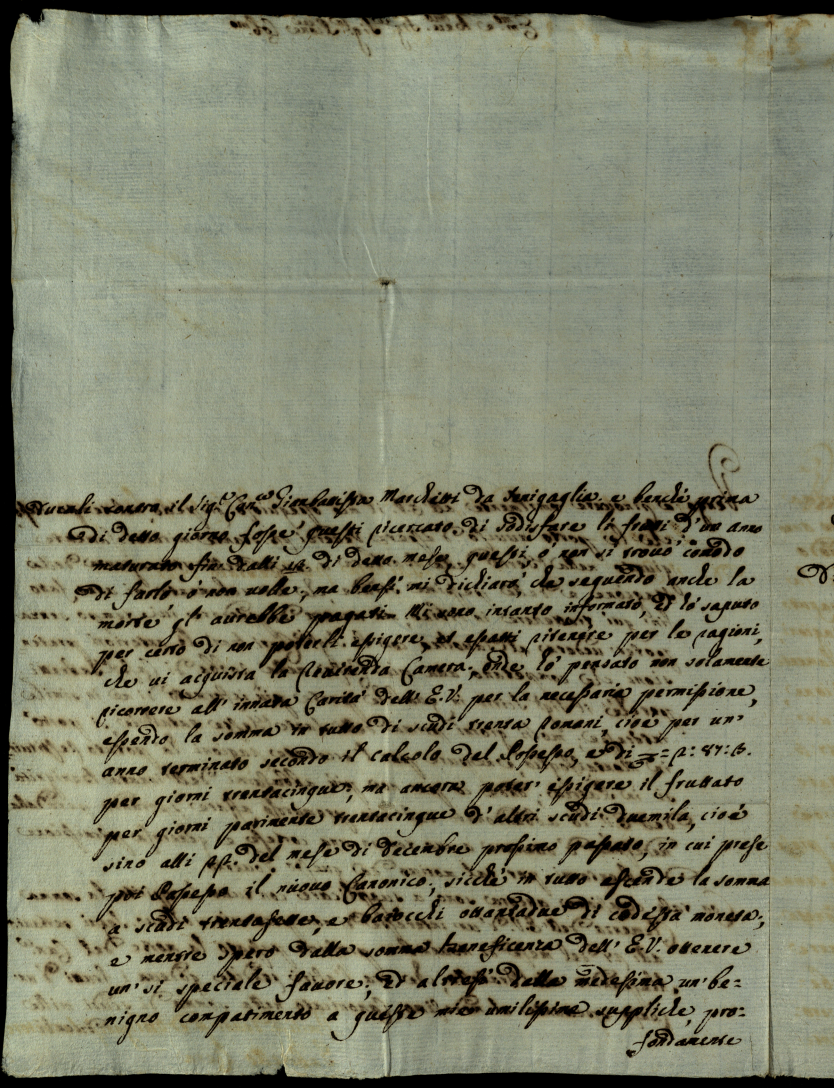 contro il Sig.r Can.co Gianbattista Marchetti da Senigaglia, e benchè prima
di detto giorno fosse questi ricercato di sodisfare li frutti d'un anno
maturato fin dalli di detto mese questi, ò non si trovò comodo
di farlo ò non volle, ma bensì mi dichiarò, che seguendo anche la
morte gl' aurebbe pagati. Mi sono intanto informato, et hò saputo
per certo di non poterli esigere, et esatti ritenere per le ragioni,
che vi acquista la Reverenda Camera, onde hò pensato non solamente
ricorrere all' innata Carità dell' E.V. per la necessaria permissione,
essendo la somma in tutto di scudi trenta Romani, cioè per un'
anno terminato secondo il calcolo del Possesso, e di
per giorni trentacinque, ma ancora poter' esigere il fruttato
per giorni parimente trentacinque d' altri scudi duemila, cioè
sino alli del mese di Decembre prossimo passato, in cui prese
poi Possesso il nuovo Canonico, sicchè in tutto ascende la somma
a scudi trentasette, e baiocchi ottantadue di codesta moneta,
e mentre spero dalla somma beneficenza dell' E.V. ottenere
un' si speciale favore, et altresì dalla medesima un' be=
nigno compatimento a queste mie umilissime suppliche, pro=
fondamente